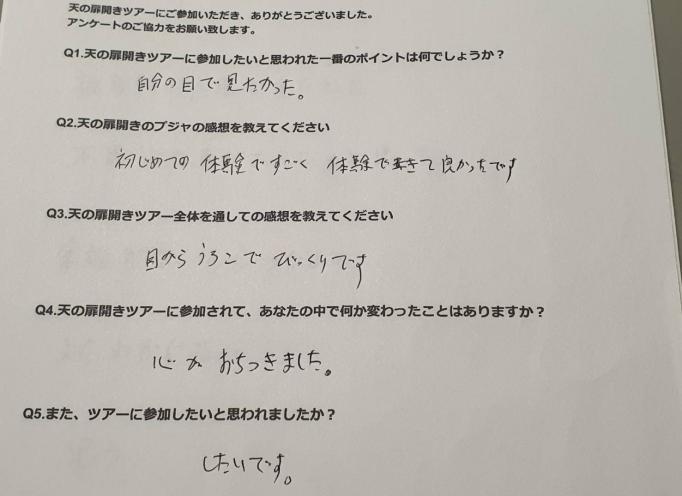 天の扉開きツアーにご参加いただき、ありがとうございました。
アンケートのご協力をお願い致します。
Q1.天の扉開きツアーに参加したいと思われた一番のポイントは何でしょうか？
自分の目で見たかった。
Q2.天の扉開きのプジャの感想を教えてください
初じめての 体験ですごく 体験できて良かったです
Q3.天の扉開きツアー全体を通しての感想を教えてください
目から うろこで びっくりです
Q4.天の扉開きツアーに参加されて、あなたの中で何か変わったことはありますか？
心が おちつきました。
Q5.また、ツアーに参加したいと思われましたか？
したいです。